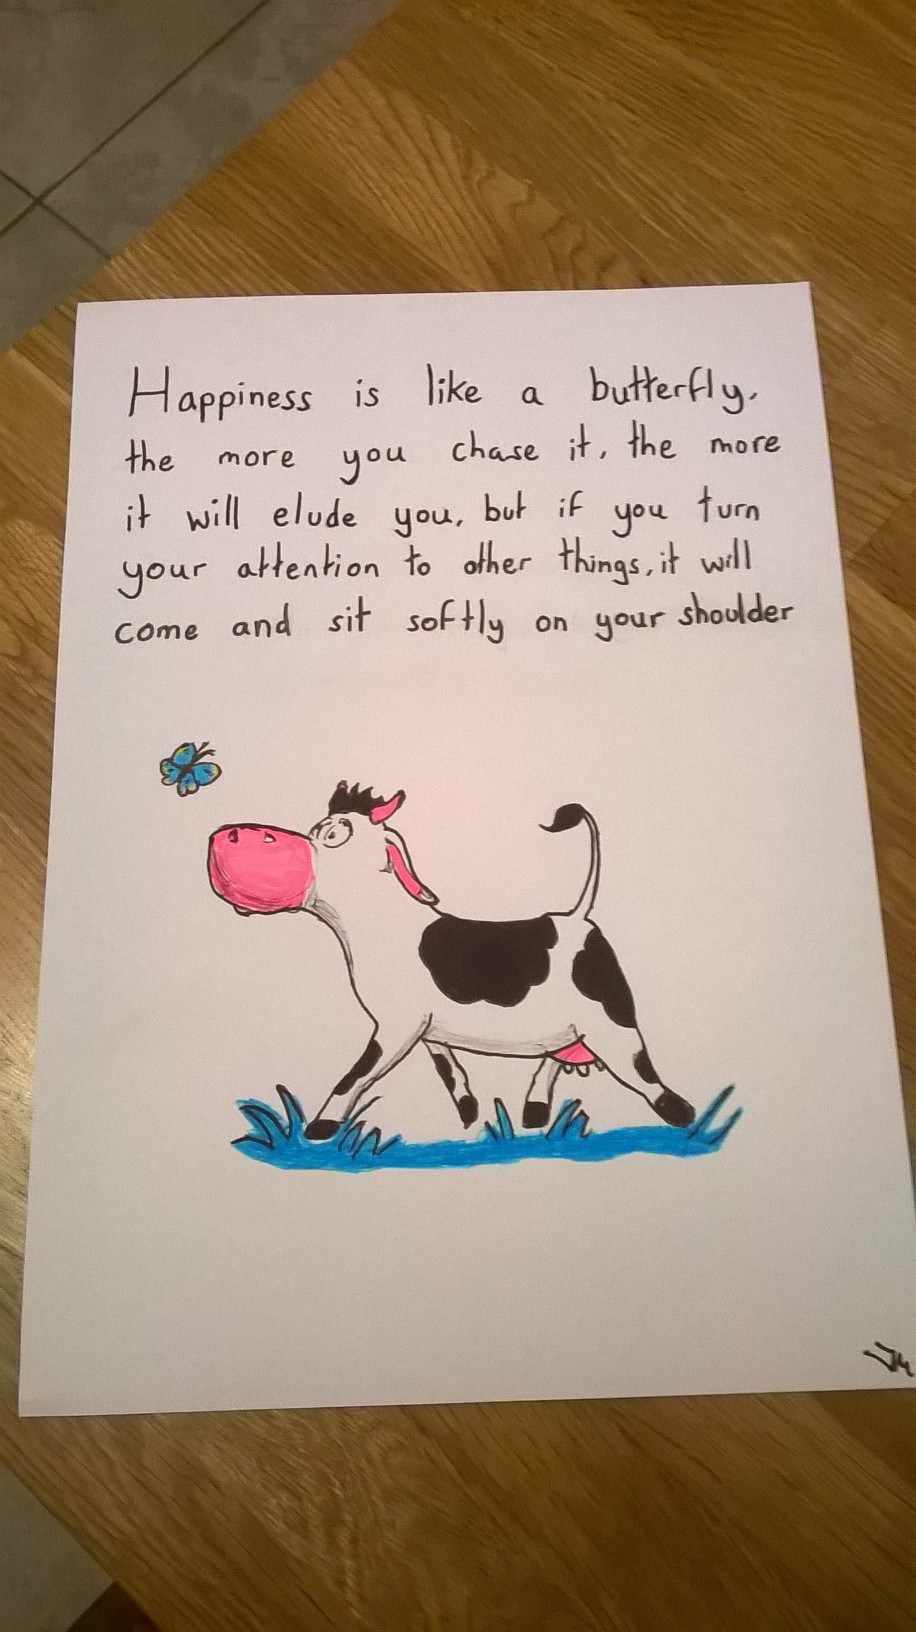 Happiness is like a butterfly.
the more you chase it, the more
it will elude you, but if you turn
your attention to other things, it will
come and sit softly on your shoulder